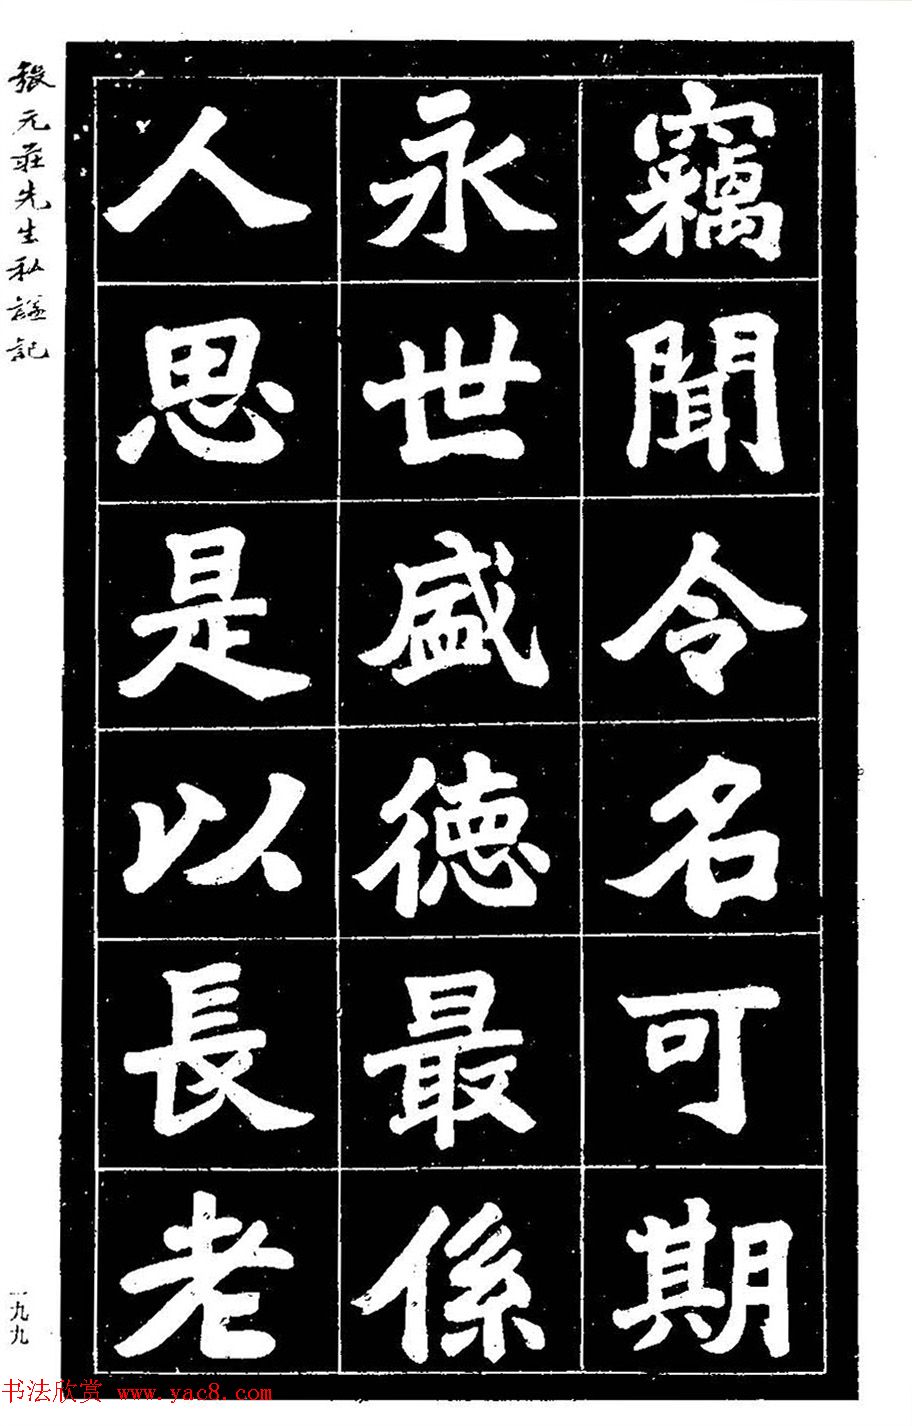 竊聞令名可期
永世盛德最係
人思是以長老
張元莊先生私謚記
一九九
书法欣赏 www.yac8.com